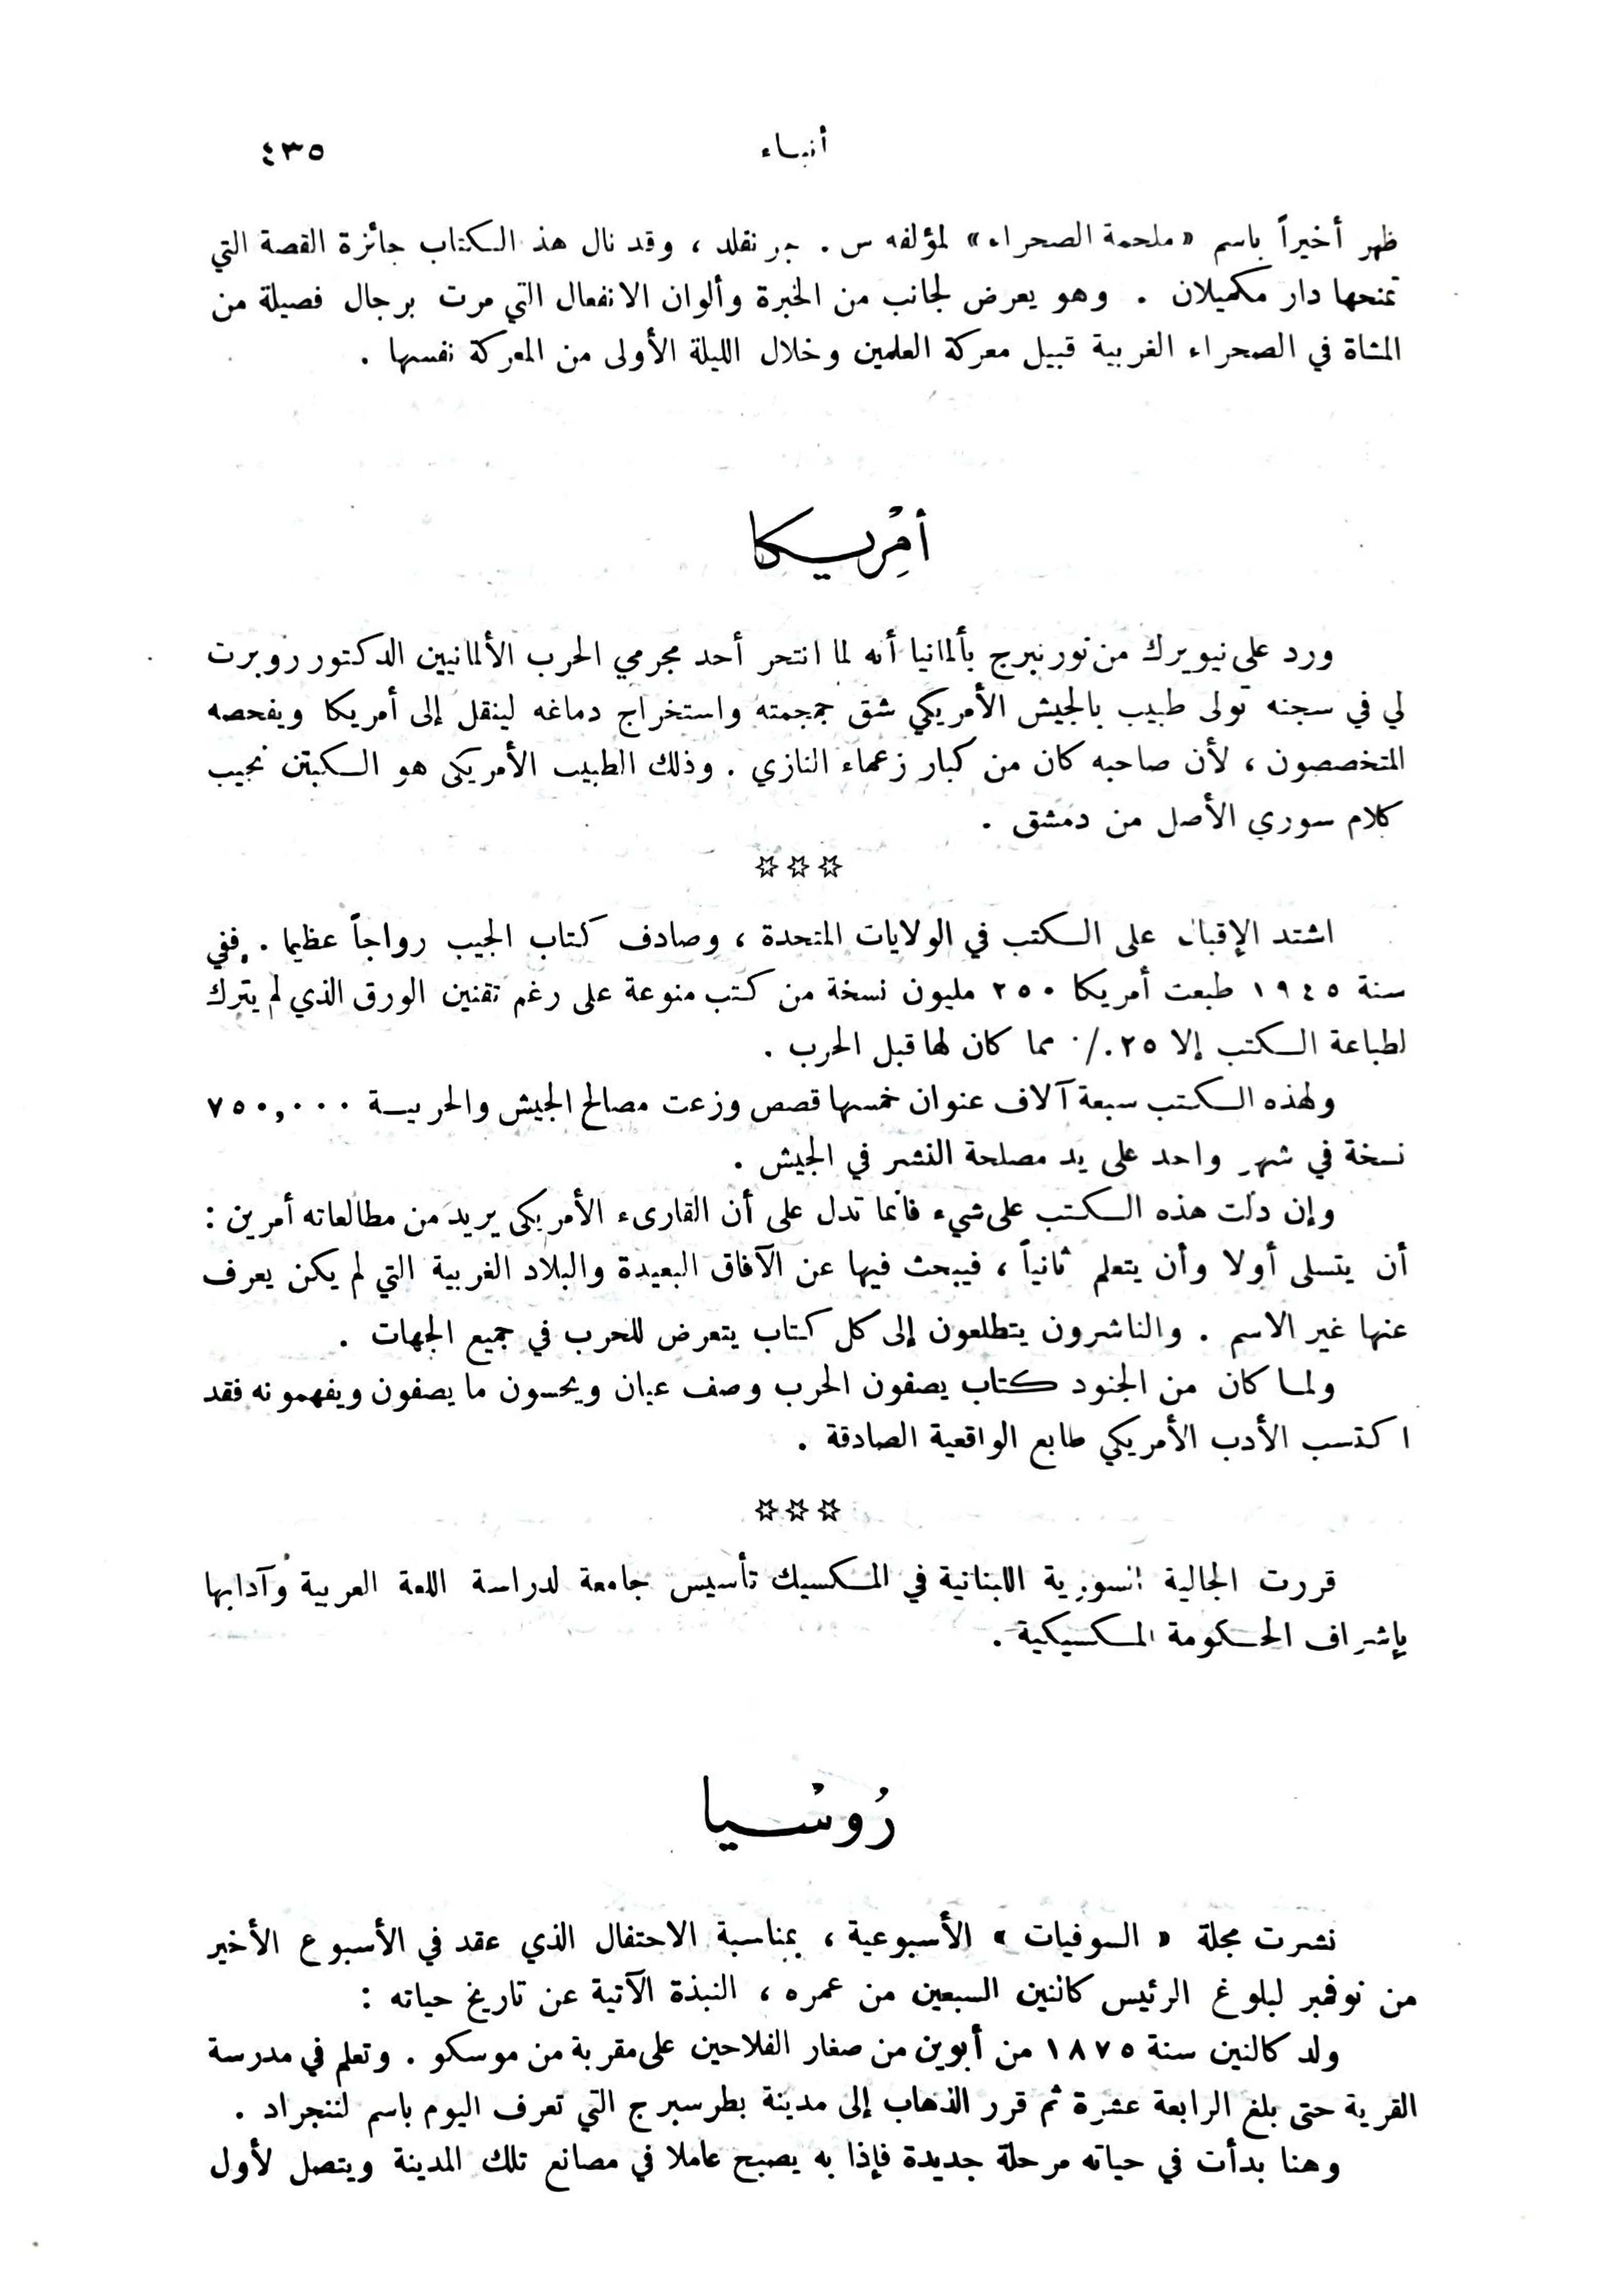 أنباء
٤٣٥
ظهر أخيراً باسم «ملحمة الصحراء» لمؤلفه س . جر نفلد ، وقد نال هذ الكتاب جائزة القصة التي
تمنحها دار مكميلان . وهو يعرض لجانب من الخبرة وألوان الانفعال التي مرت برجال فصيلة من
المشاة في الصحراء الغربية قبيل معركة العلمين وخلال الليلة الأولى من المعركة نفسها .
أمْرِيكا
ورد على نيويرك من نورنبرج بألمانيا أنه لما انتحر أحد مجرمي الحرب الألمانيين الدكتور روبرت
لي في سجنه تولى طبيب بالجيش الأمريكي شق جمجمته واستخراج دماغه لينقل إلى أمريكا ويفحصه
المتخصصون ، لأن صاحبه كان من كبار زعماء النازي . وذلك الطبيب الأمريكى هو الكبتن نجيب
كلام سوري الأصل من دمشق .
☆☆☆
اشتد الإقبال على الكتب في الولايات المتحدة ، وصادف كتاب الجيب رواجاً عظيما . ففي
سنة ١٩٤٥ طبعت أمريكا ٢٥٠ مليون نسخة من كتب منوعة على رغم تقنين الورق الذي لم يترك
لطباعة الكتب إلا ٢٥٪ مما كان لها قبل الحرب .
ولهذه الكتب سبعة آلاف عنوان خمسها قصص وزعت مصالح الجيش والحربية ٧٥٠,٠٠٠
نسخة في شهر واحد على يد مصلحة النشر في الجيش .
وإن دلت هذه الكتب على شيء فانما تدل على أن القارىء الأمريكى يريد من مطالعاته أمرين :
أن يتسلى أولا وأن يتعلم ثانياً ، فيبحث فيها عن الآفاق البعيدة والبلاد الغربية التي لم يكن يعرف
عنها غير الاسم . والناشرون يتطلعون إلى كل كتاب يتعرض للحرب في جميع الجهات .
ولما كان من الجنود كتاب يصفون الحرب وصف عيان ويحسون ما يصفون ويفهمونه فقد
اكتسب الأدب الأمريكي طابع الواقعية الصادقة .
☆☆☆
قررت الجالية السورية اللبنانية في المكسيك تأسيس جامعة لدراسة اللغة العربية وآدابها
بإشراف الحكومة المكسيكية .
رُوسْيا
نشرت مجلة « السوفيات » الأسبوعية ، بمناسبة الاحتفال الذي عقد في الأسبوع الأخير
من نوفمبر لبلوغ الرئيس كالنين السبعين من عمره ، النبذة الآتية عن تاريخ حياته :
ولد كالنين سنة ١٨٧٥ من أبوين من صغار الفلاحين على مقربة من موسكو . وتعلم في مدرسة
القرية حتى بلغ الرابعة عشرة ثم قرر الذهاب إلى مدينة بطرسبرج التي تعرف اليوم باسم لننجراد .
وهنا بدأت في حياته مرحلة جديدة فإذا به يصبح عاملا في مصانع تلك المدينة ويتصل لأول